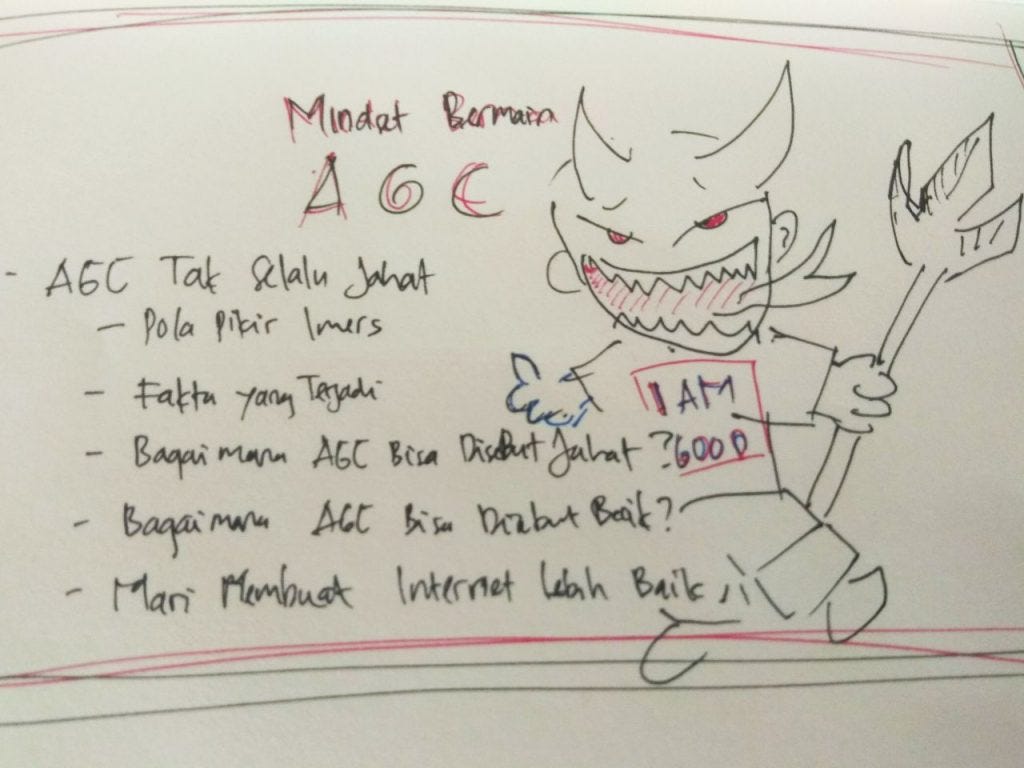 Mindset Bermain
AGC
- AGC Tak Selalu Jahat
- Pola Pikir Imers
- Fakta yang Terjadi
- Bagaimana AGC Bisa Disebut Jahat?
- Bagaimana AGC Bisa Disebut Baik?
- Mari Membuat Internet Lebih Baik
I AM
GOOD